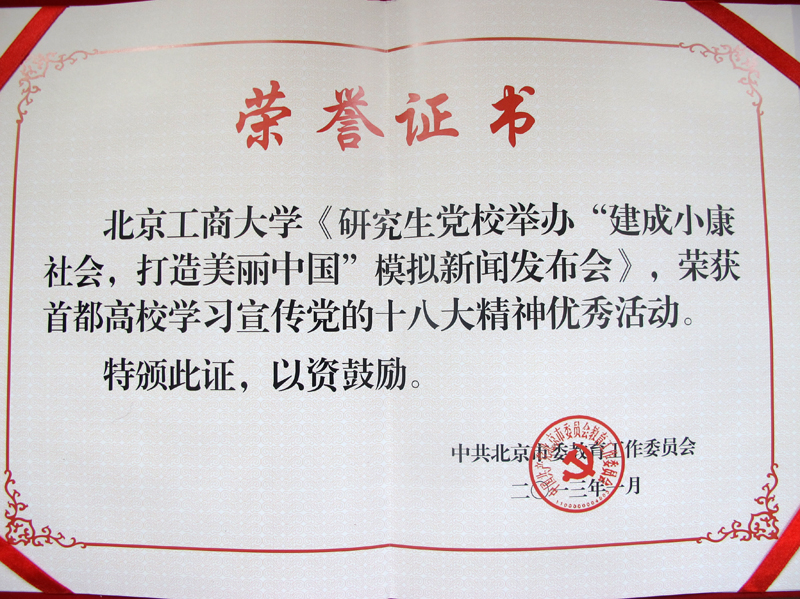 荣誉证书
北京工商大学《研究生党校举办“建成小康
社会，打造美丽中国”模拟新闻发布会》，荣获
首都高校学习宣传党的十八大精神优秀活动。
特颁此证，以资鼓励。
中共北京市委教育工作委员会
二〇一三年一月